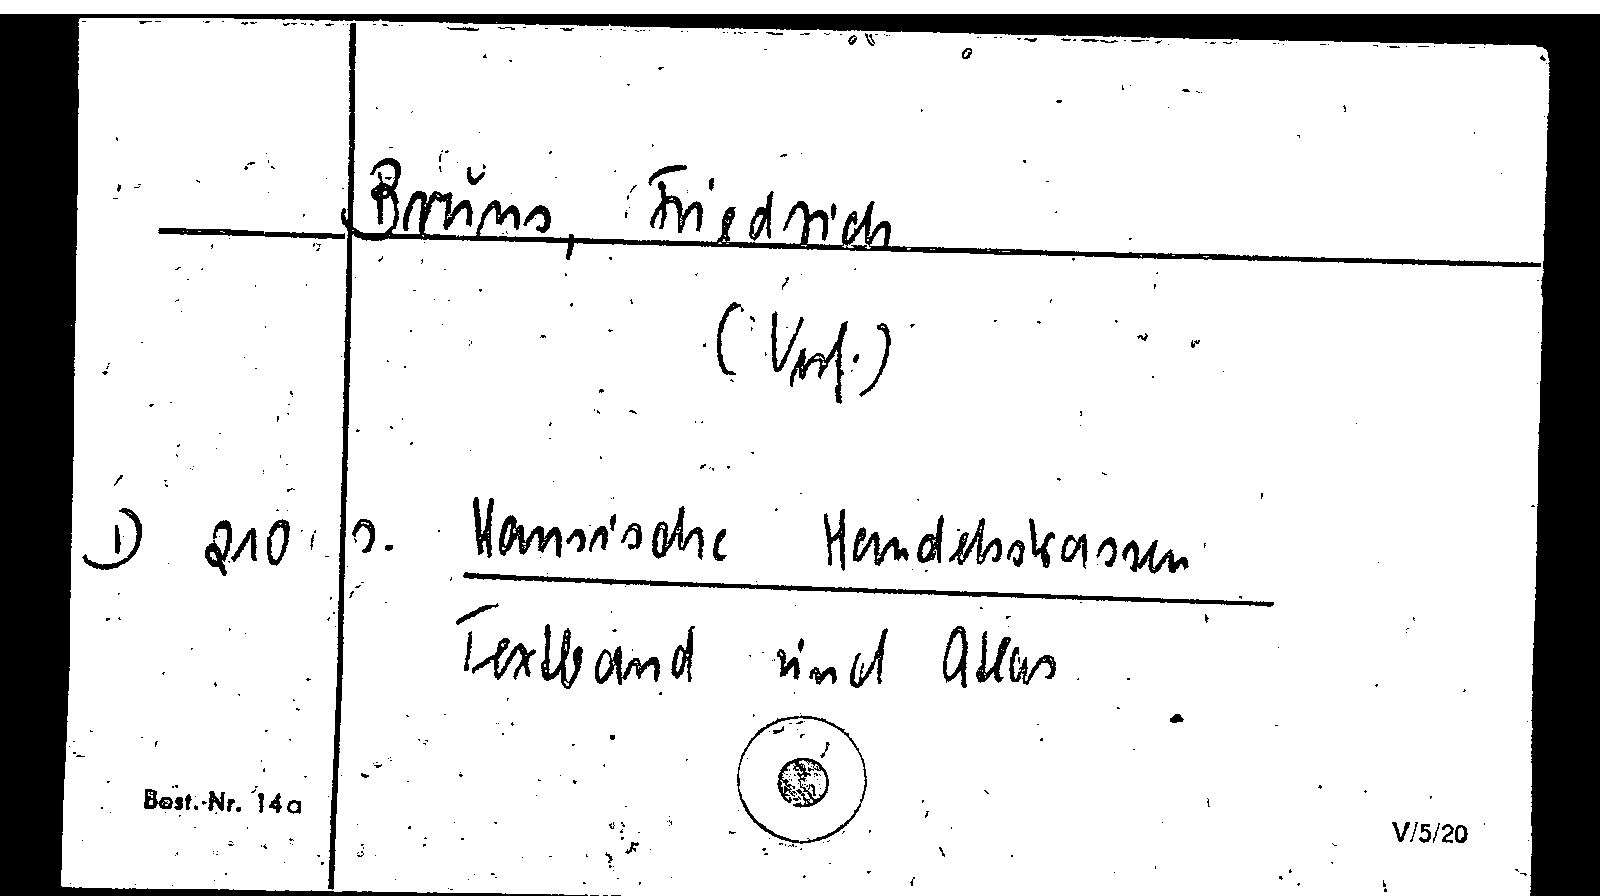 Bruns, Friedrich
(Verf.)
D 210 s. Hansische Handelsstrassen
Textband und Atlas
Best.-Nr. 14a
V/5/20